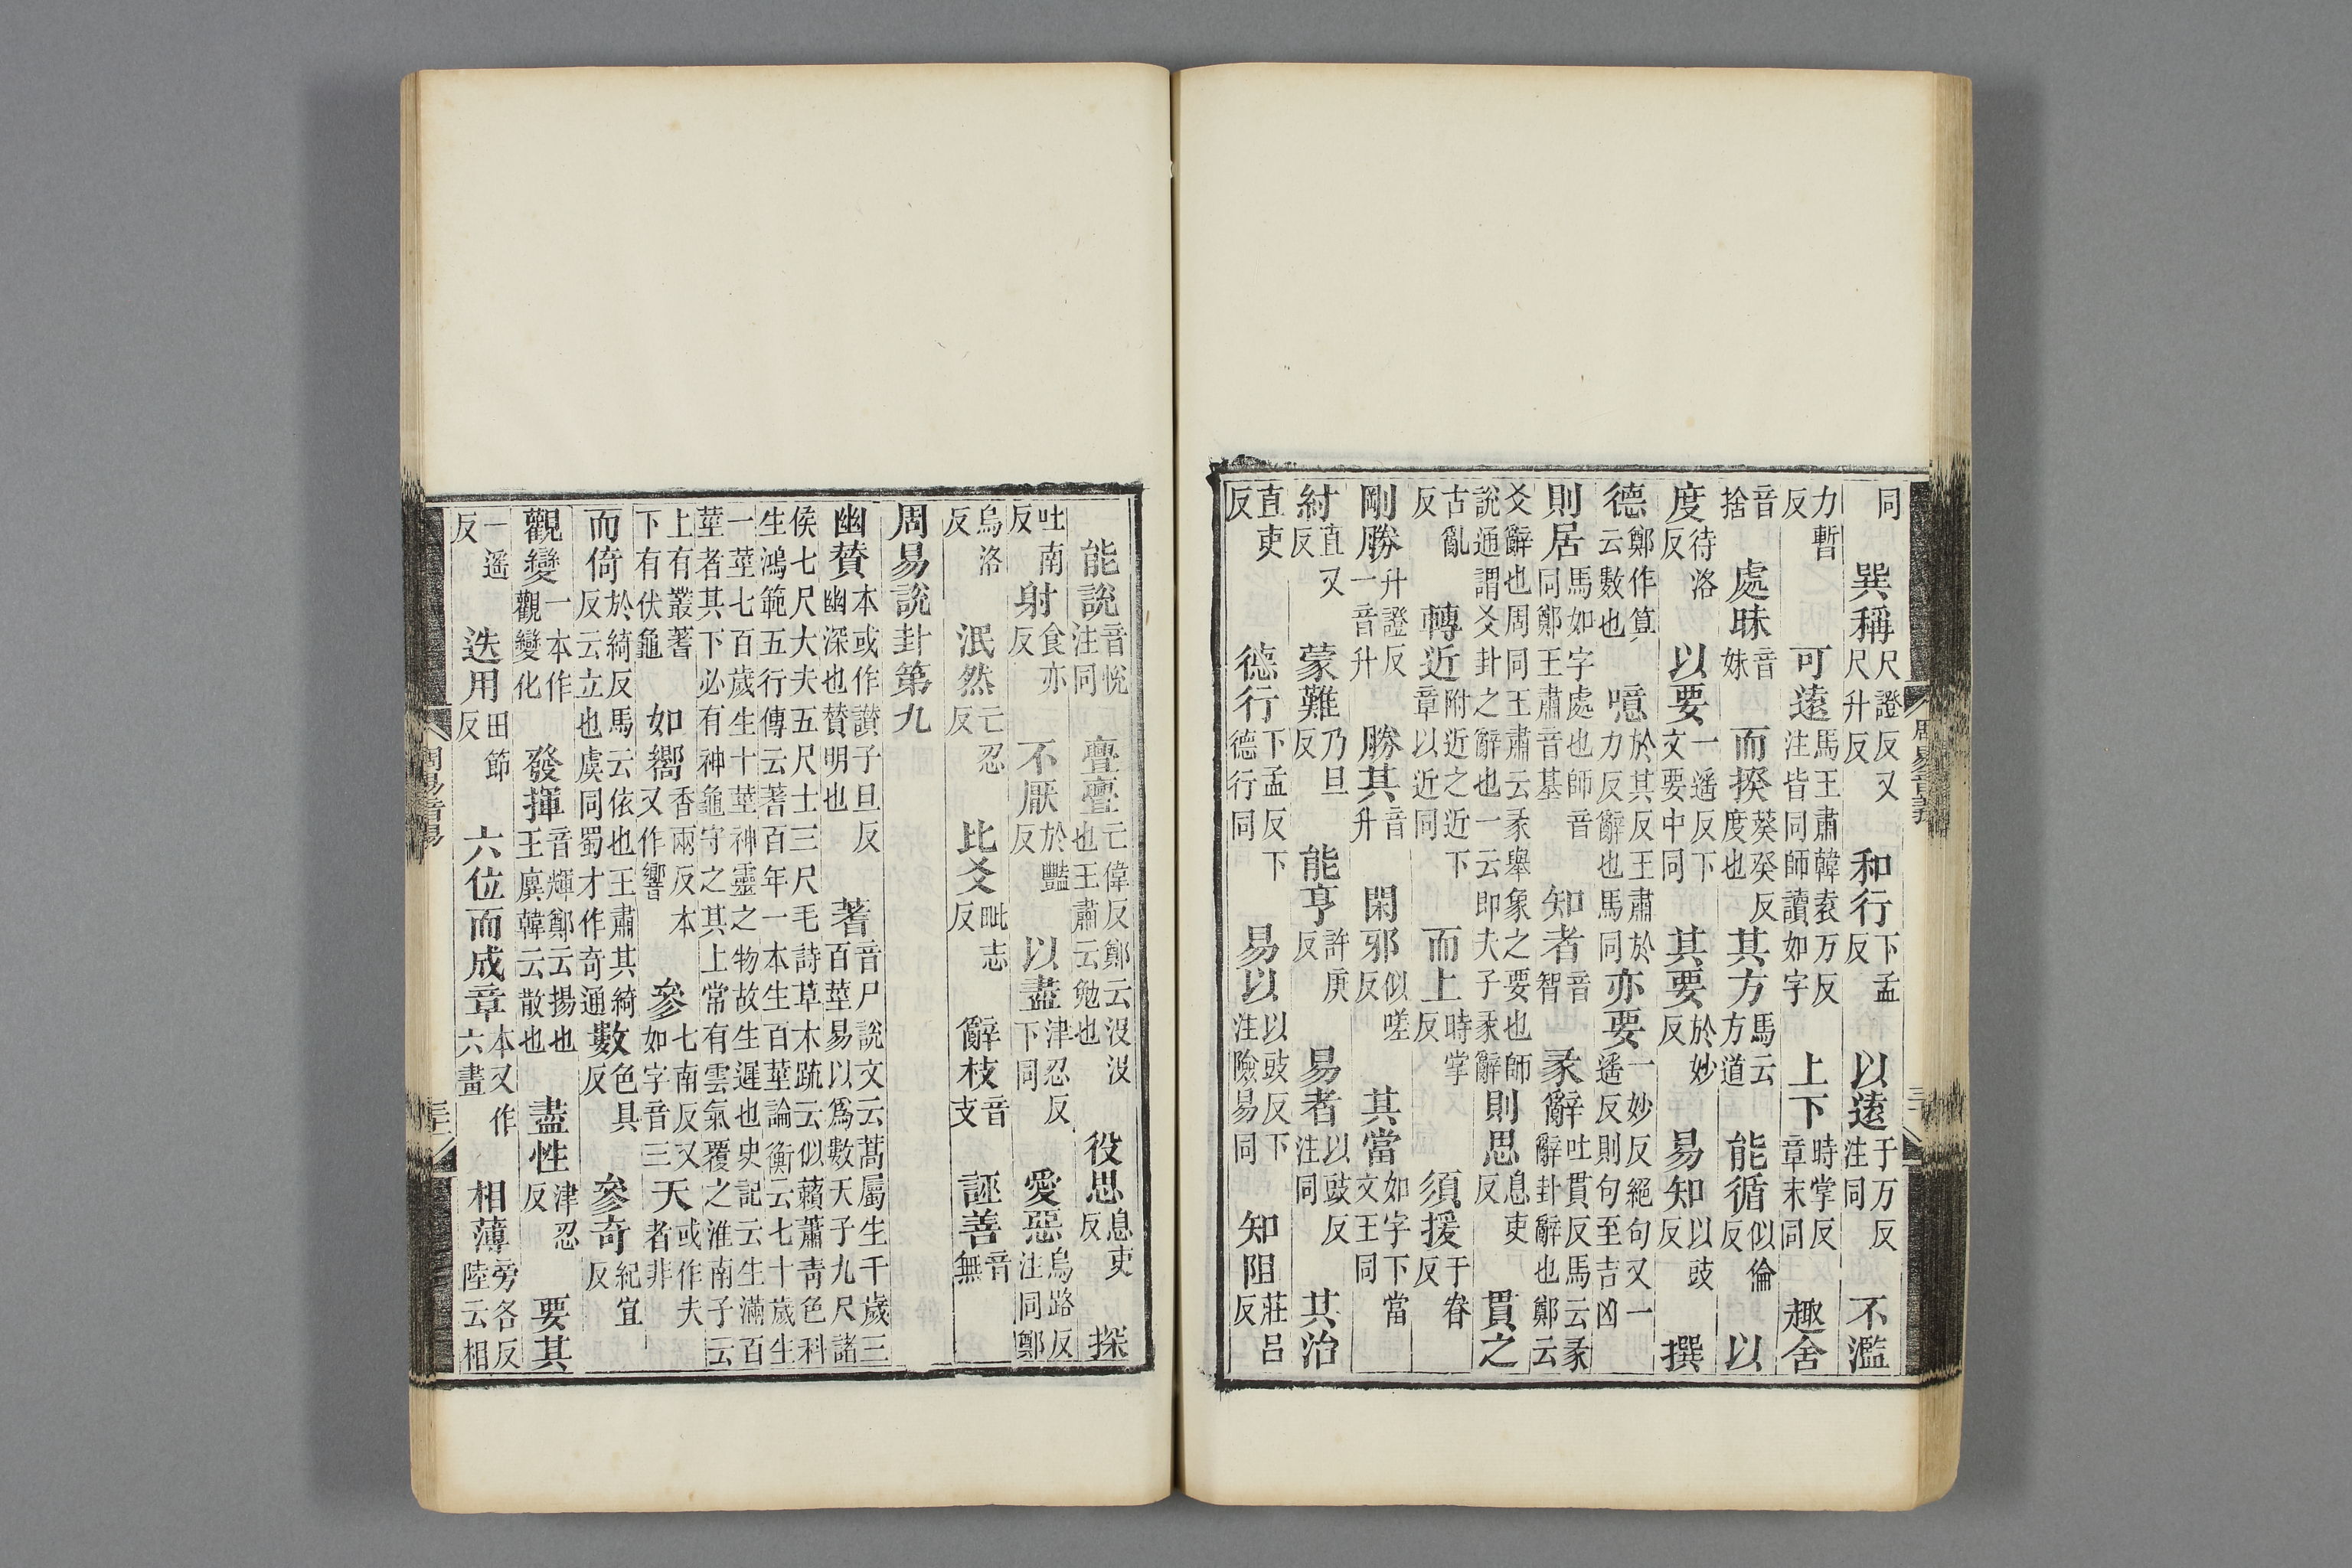 周易音義
同 巽稱尺證反又尺升反 和行下孟反 以遠于万反注同 不濫
力暫反 可遠馬王肅韓袁万反注皆同師讀如字 上下時掌反章末同 趣舍
音捨 處昧音妹 而揆葵癸反度也 其方馬云方道 能循似倫反 以
度待洛反 以要一遥反下文要中同 其要於妙反 易知以豉反 撰
德鄭作算云數也 噫於其反王肅於力反辭也馬同 亦要一妙反絕句又一遥反則句至吉凶
則居馬如字處也師音同鄭王肅音基 知者音智 彖辭吐貫反馬云彖辭卦辭也鄭云
爻辭也周同王肅云彖舉象之要也師說通謂爻卦之辭也一云即夫子彖辭 則思息吏反 貫之
古亂反 轉近附近之近下章以近同 而上時掌反 須援于眷反
剛勝升證反一音升 勝其音升 閑邪似嗟反 其當如字下當文王同
紂直又反 蒙難乃旦反 能亨許庚反 易者以豉反注同 其治
直吏反 德行下孟反下德行同 易以以豉反下注險易同 知阻莊呂反
能說音悅注同 亹亹亡偉反鄭云沒沒也王肅云勉也 役思息吏反 探
吐南反 射食亦反 不厭於豔反 以盡津忍反下同 愛惡烏路反注同鄭
烏洛反 泯然亡忍反 比爻毗志反 辭枝音支 誣善音無
周易說卦第九
幽贊本或作讃子旦反幽深也贊明也 蓍音尸說文云蒿屬生千歲三百莖易以爲數天子九尺諸
侯七尺大夫五尺士三尺毛詩草木䟽云似藾蕭青色科生鴻範五行傳云蓍百年一本生百莖論衡云七十歲生
一莖七百歲生十莖神靈之物故生遲也史記云生滿百莖者其下必有神龜守之其上常有雲氣覆之淮南子云
上有叢蓍下有伏龜 如嚮香兩反本又作響 參七南反又如字音三 天或作夫者非
而倚於綺反馬云依也王肅其綺反云立也虞同蜀才作奇通 數色具反 參奇紀宜反
觀變一本作觀變化 發揮音輝鄭云揚也王廙韓云散也 盡性津忍反 要其
一遥反 迭用田節反 六位而成章本又作六畫 相薄旁各反陸云相